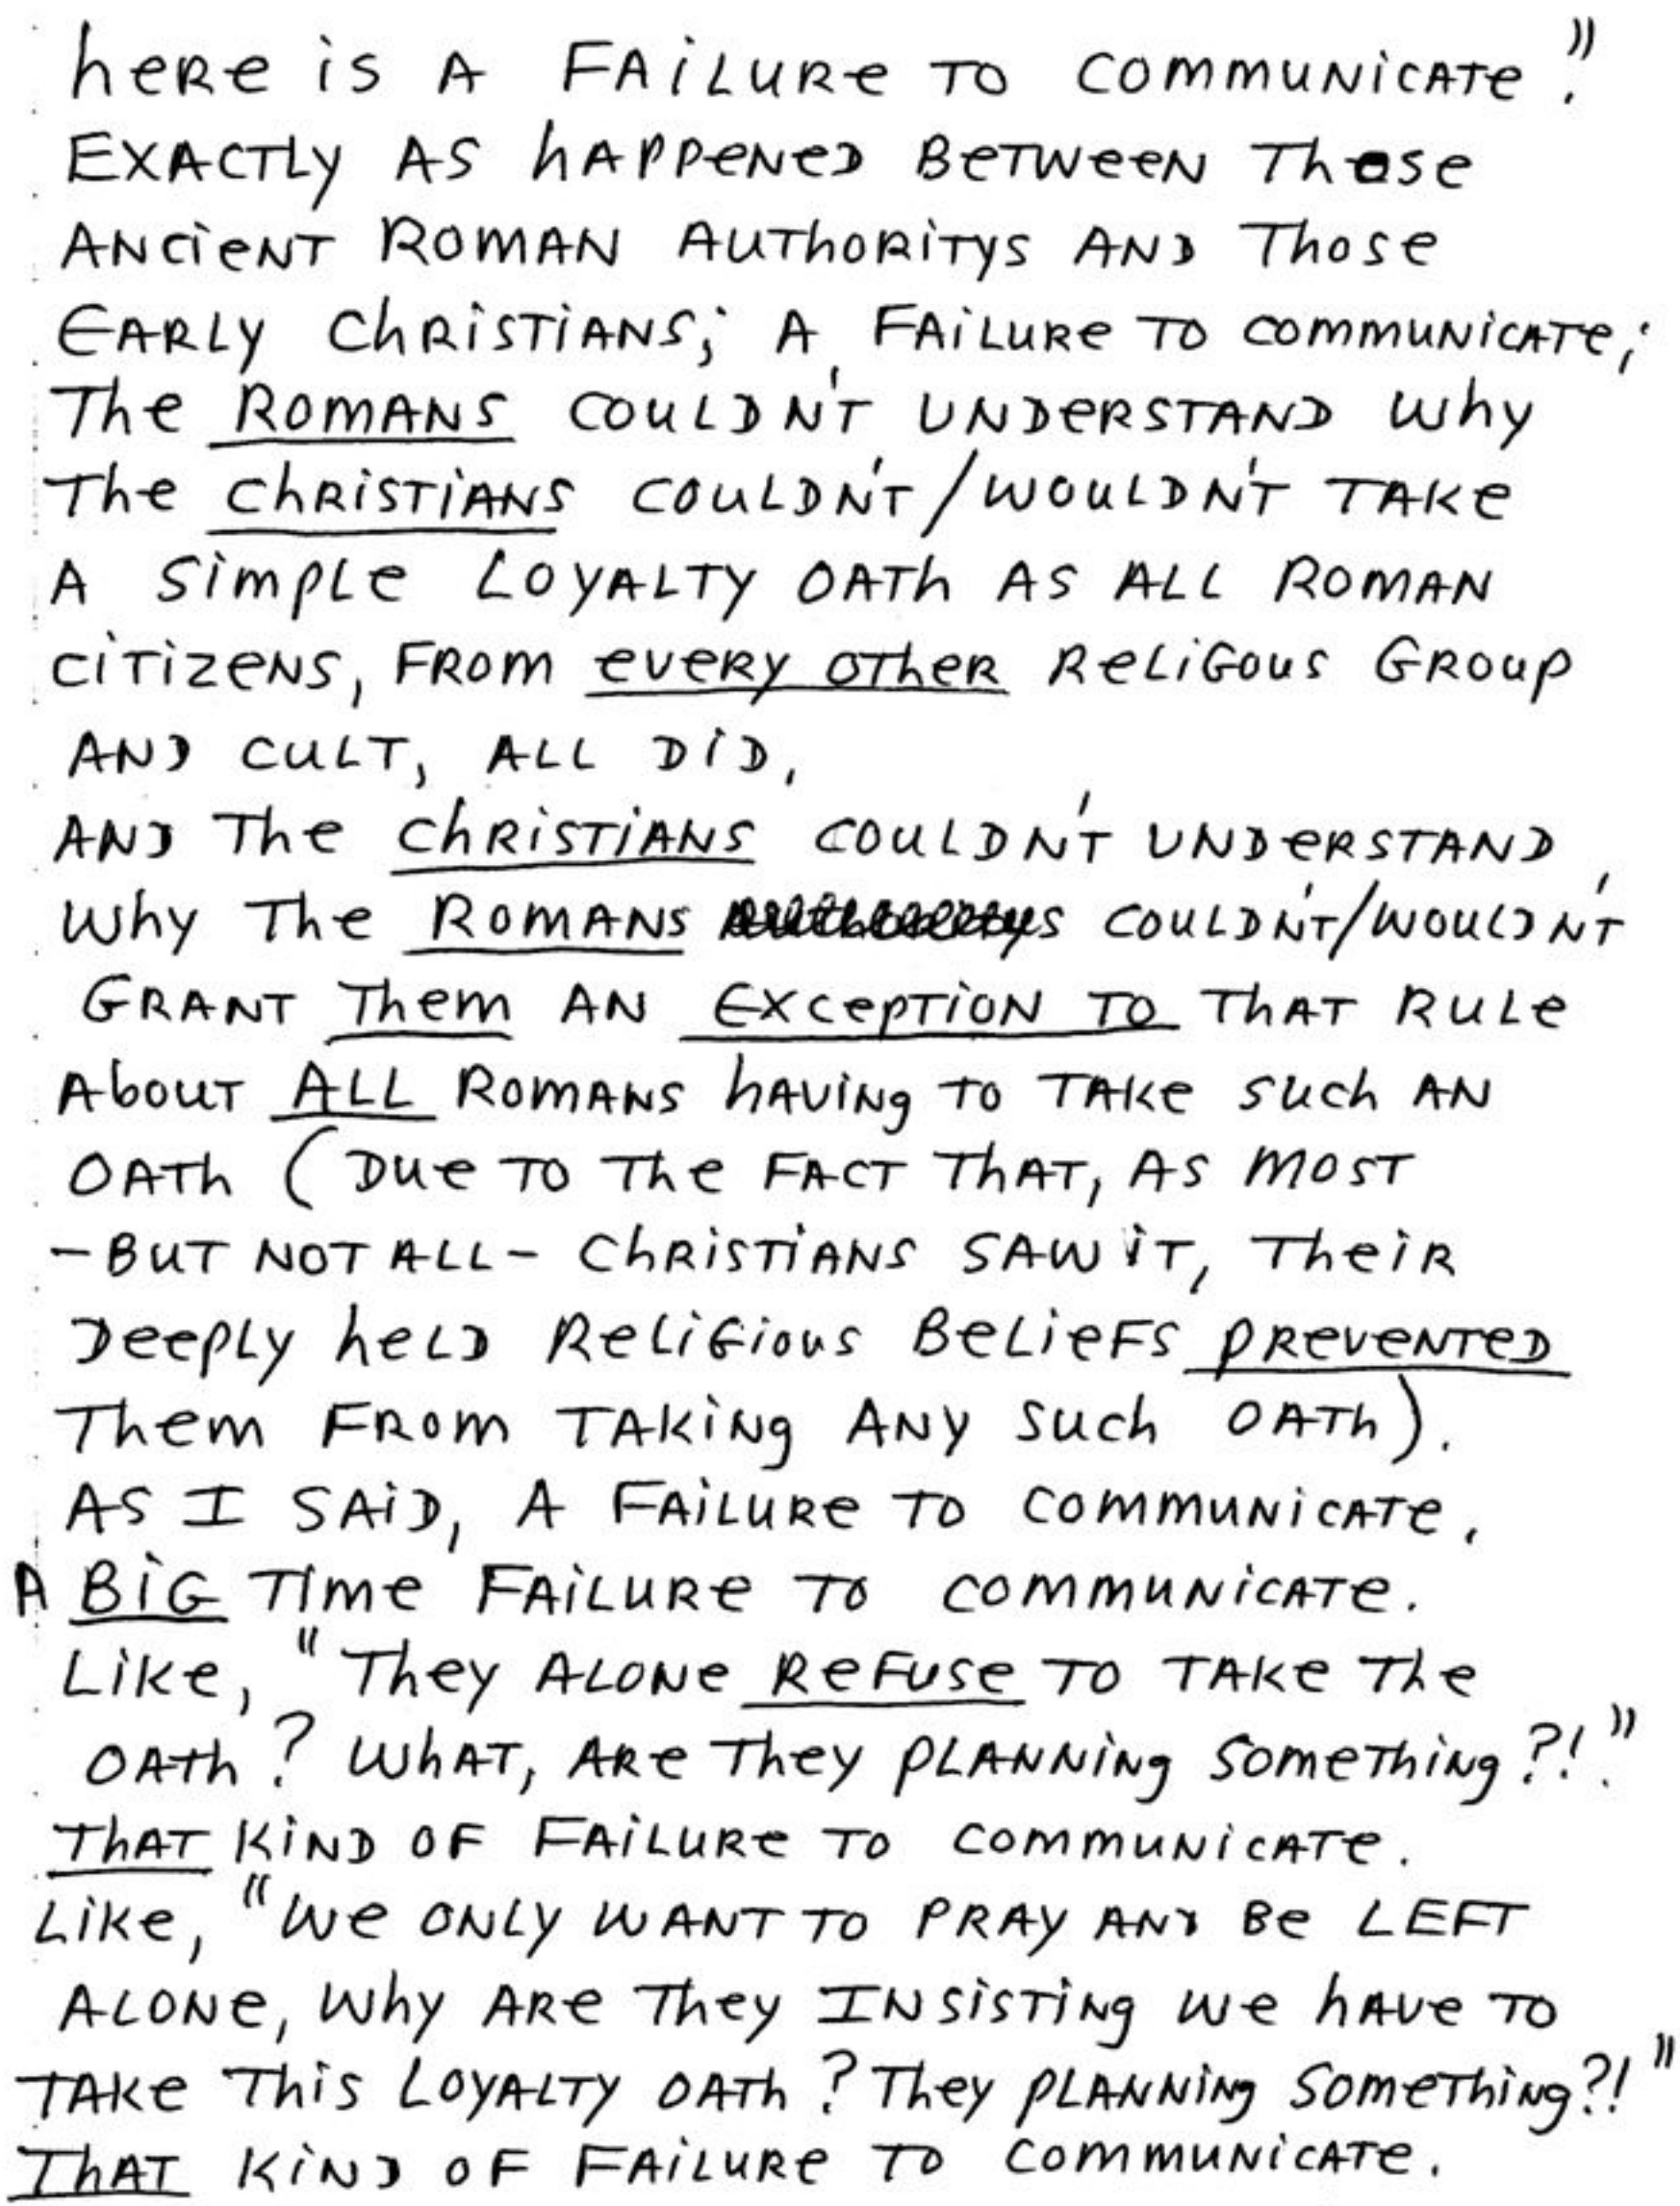 here is A FAiLURe TO communicATe."
EXACTLy AS hAPPeNeD BeTWeeN These
ANcieNT ROMAN AuThoRiTys AND Those
EARLy ChRiSTiANS; A FAiLURe TO communicATe;
The ROMANS COULDN'T UNDeRSTAND Why
The ChRiSTiANS COULDN'T/WOULDN'T TAKe
A SimPLe LOYALTY OATh AS ALL ROMAN
CiTizeNS, FROM eveRy OTheR ReLiGous GROup
AND CULT, ALL DiD,
AND The ChRiSTiANS COULDN'T UNDeRSTAND
Why The ROMANS COULDN'T/WOULDN'T
GRANT Them AN EXcePTiON TO ThAT RULe
AbouT ALL ROMANS hAVING TO TAKe such AN
OATh (Due TO The FACT ThAT, AS MOST
-BUT NOT ALL- ChRiSTiANS SAW iT, TheiR
DeePLy heLD ReLiGious BeLieFS PReveNTeD
Them FROM TAKiNg ANY Such OATh).
AS I SAiD, A FAiLURe TO communicATe.
A BiG Time FAiLURe TO communicATe.
Like, "They ALONe ReFuse TO TAKe The
OATh? WhAT, ARe They PLANNiNg SomeThiNg?!."
ThAT KiND OF FAiLURe TO communicATe.
Like, "We ONLy WANT TO PRAY AND Be LEFT
ALONe, Why ARe They INSiSTiNg We hAVe TO
TAKe This LOYALTY OATh? They PLANNiNg SomeThiNg?!"
ThAT KiND OF FAiLURe TO communicATe.